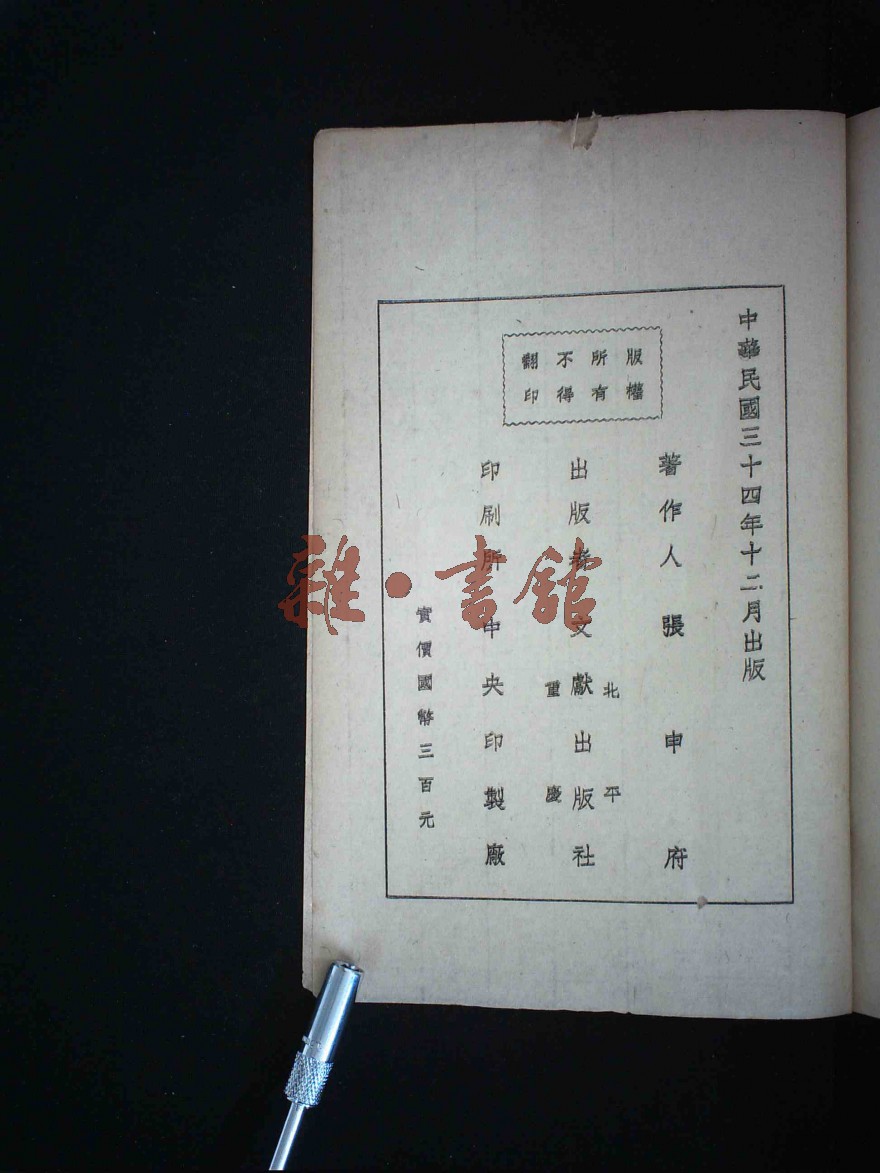 中華民國三十四年十二月出版
版權
所有
不得
翻印
著作人張申府
出版者文獻出版社
北平
重慶
印刷所中央印製廠
實價國幣三百元
雜·書館